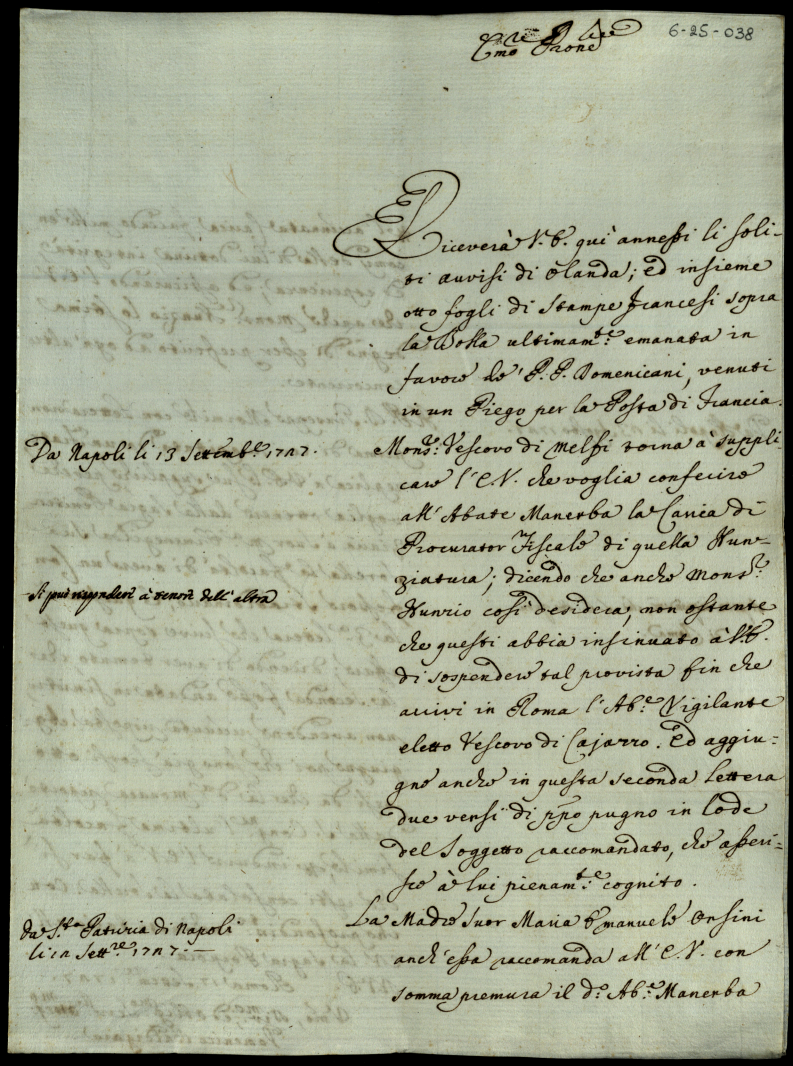 6-25-038
Em.re Prone
Riceverà V. E. quì annessi li soli-
ti avvisi di Olanda; ed insieme
otto fogli di Stampe Francesi sopra
la Bolla ultimam.te emanata in
favore de' P. P. Domenicani, venuti
in un Piego per la Posta di Francia.
Da Napoli li 13 Settemb.e 1727.
Mons.r Vescovo di Melfi torna à suppli-
care l'E.V. che voglia conferire
all'Abate Manerba la Carica di
Procurator Fiscale di quella Nun-
ziatura; dicendo che anche Mons.r
Si può rispondere à tenore dell'altra
Nunzio così desidera, non ostante
che questi abbia insinuato à V.E.
di sospendere tal provista fin che
arrivi in Roma l'Ab.e Vigilante
eletto Vescovo di Cajazzo. Ed aggiu-
gne anche in questa seconda Lettera
due versi di pp̃o pugno in lode
del Soggetto raccomandato, che asseri-
sce à lui pienam.te cognito.
da S.ta Patrizia di Napoli
li 12 Sett.re 1727.—
La Madre Suor Maria Emanuele Orsini
anch'essa raccomanda all'E.V. con
somma premura il d.o Ab.e Manerba